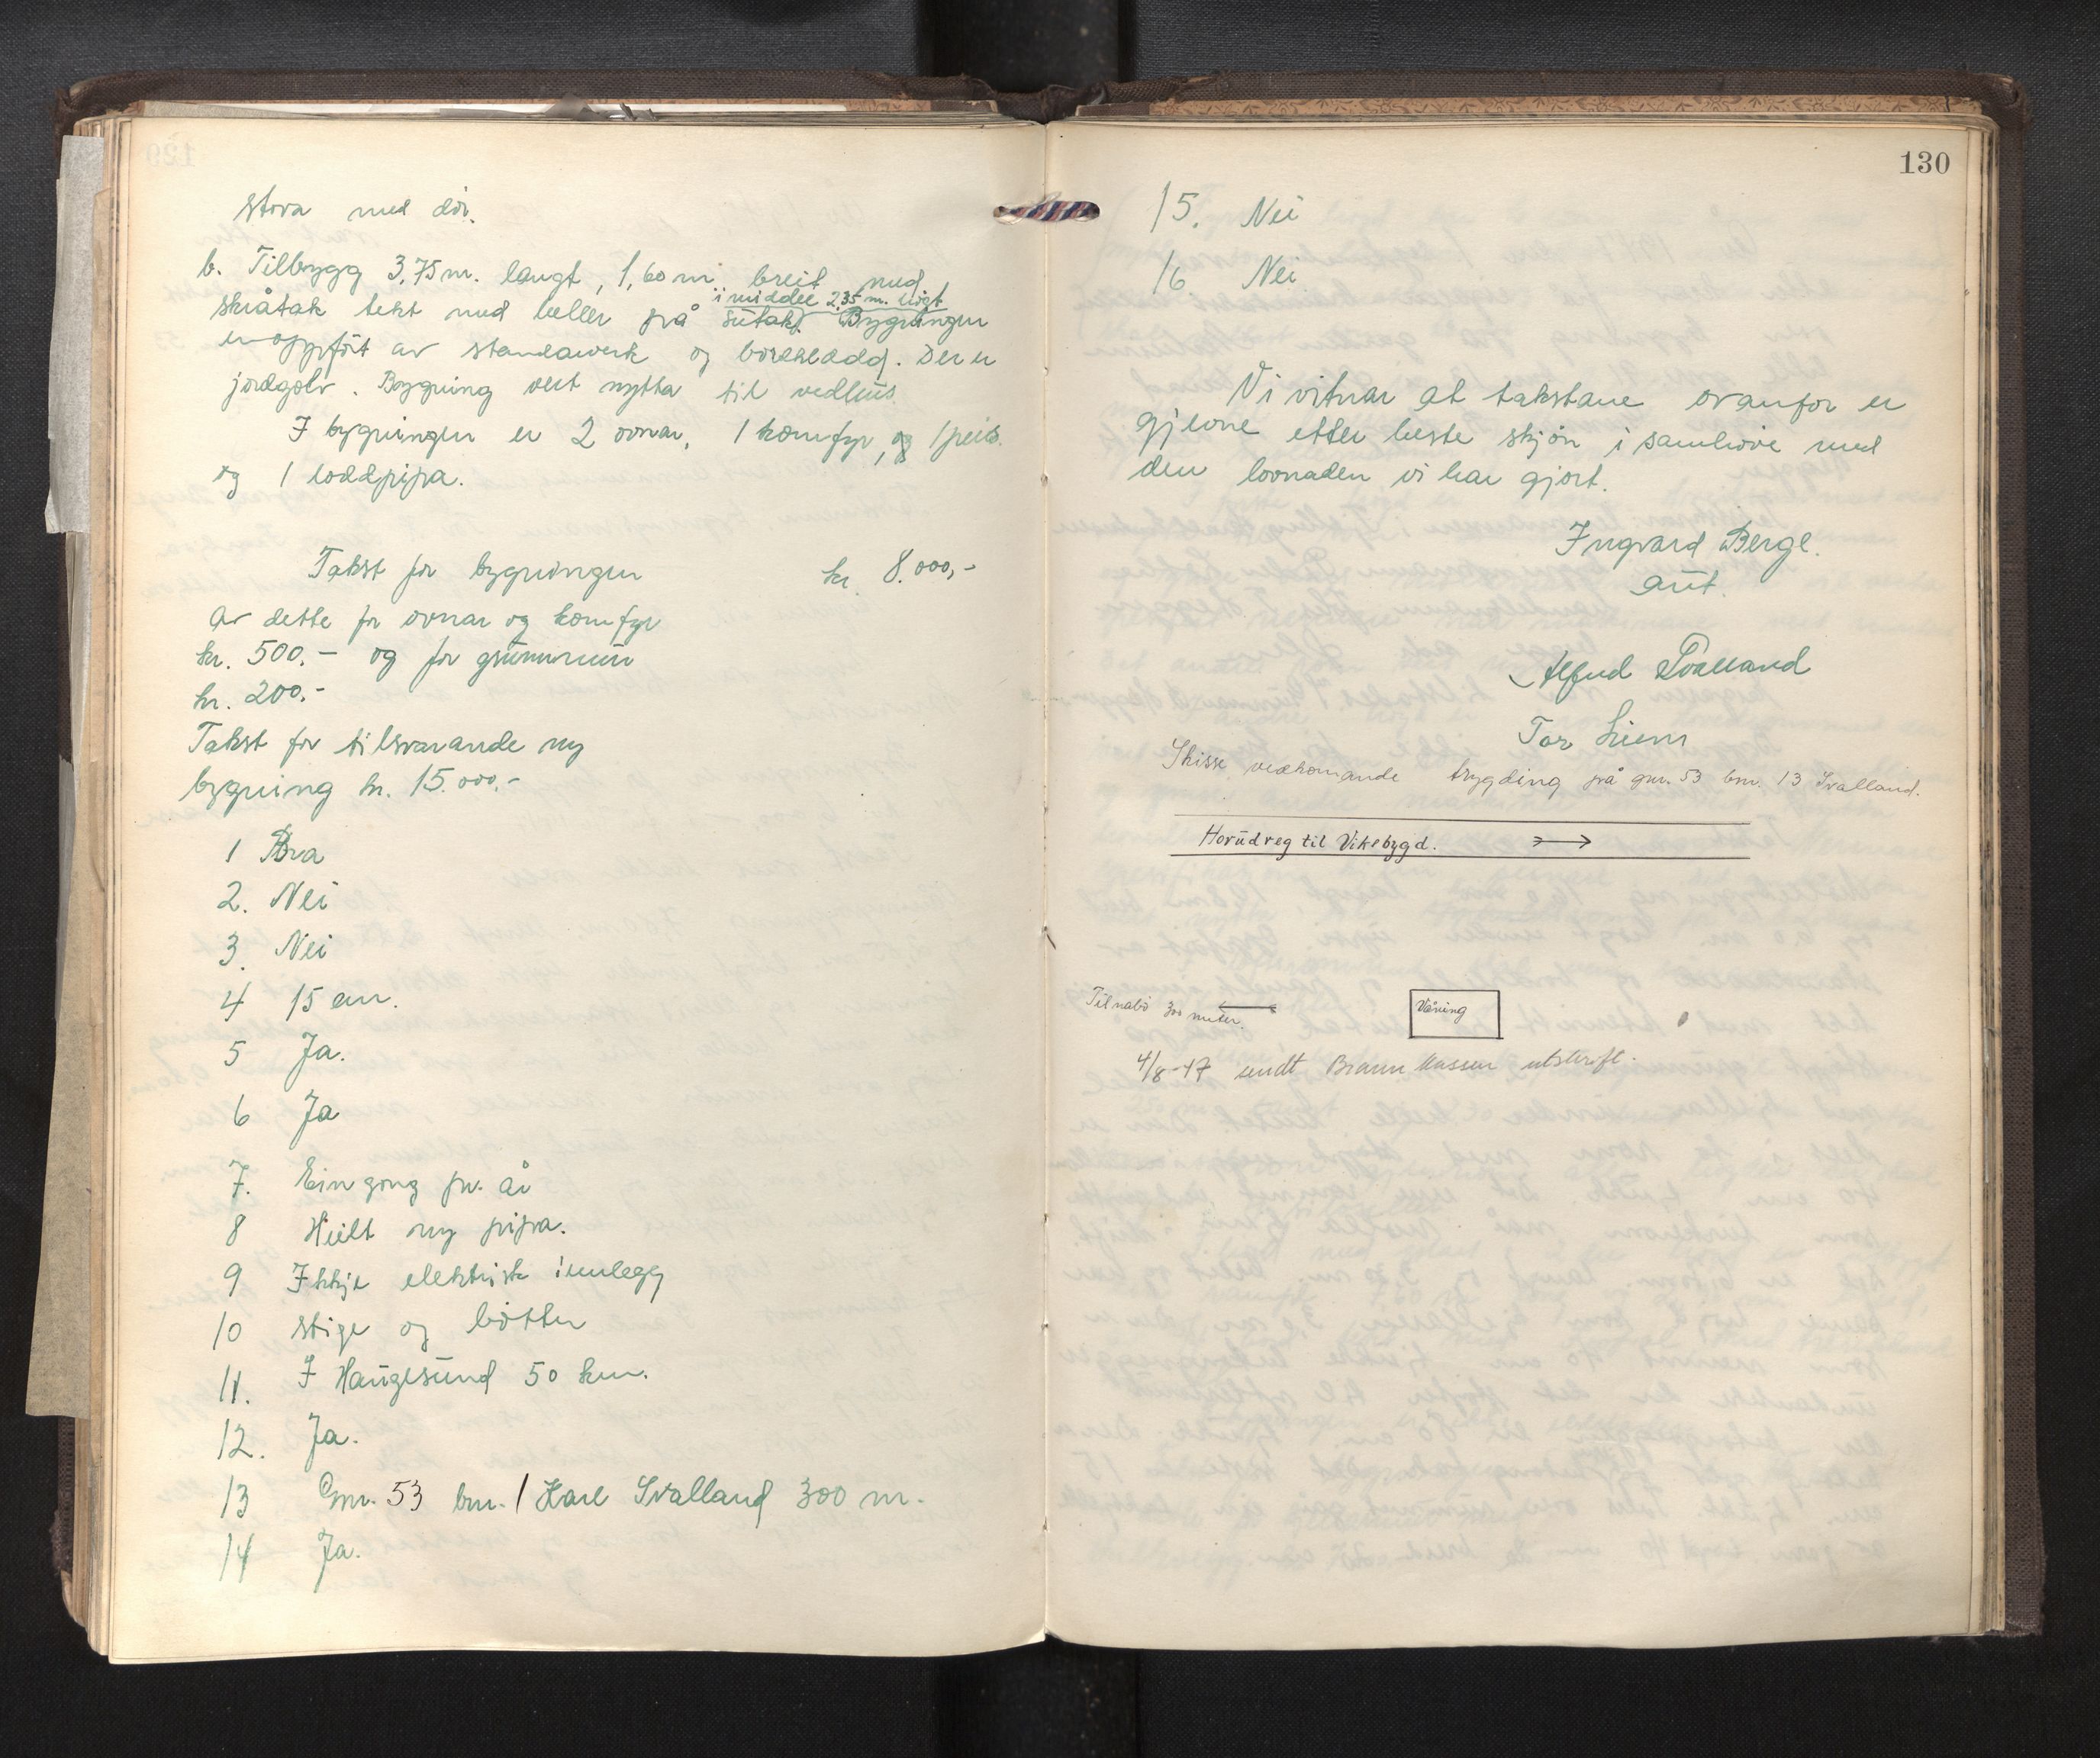 stova med dör.
b. Tilbygg 3,75 m. langt, 1,60 m. breit med
i middel 2,35 m. högt
skråtak tekt med heller på sutak. Bygningen
er oppfört av standawerk og bordkledd. Der er
jordgolv. Bygning vert nytta til vedhus.
I bygningen er 2 ovnar, 1 komfyr, og 1 peis.
og 1 loddpipa.
Takst for bygningen kr. 8.000,-
Av dette for ovnar og komfyr
kr. 500,- og for grunnmur
kr. 200,-
Takst for tilsvarande ny
bygning kr. 15.000,-
1 Bra
2. Nei
3. Nei
4 15 cm.
5 Ja.
6 Ja
7. Ein gong pr. år
8 Heilt ny pipa.
9 Ikkje elektrisk innlegg
10 stige og bötter
11. I Haugesund 50 km.
12. Ja.
13 Gnr. 53 bnr. 1 Karl Svalland 300 m.
14 Ja.
130
15. Nei
16 Nei
Vi vitnar at takstane ovanfor er
gjevne etter beste skjön i samhöve med
den lovnaden vi har gjort.
Ingvard Berge.
aut.
Alfred
Tor
Skisse vedkomande bygding på gnr. 53 bnr. 13 Svalland.
Hovudveg til Vikebygd.
Til nabo 300 meter.
Våning
4/8-47 sendt Brannkassen utskrift.